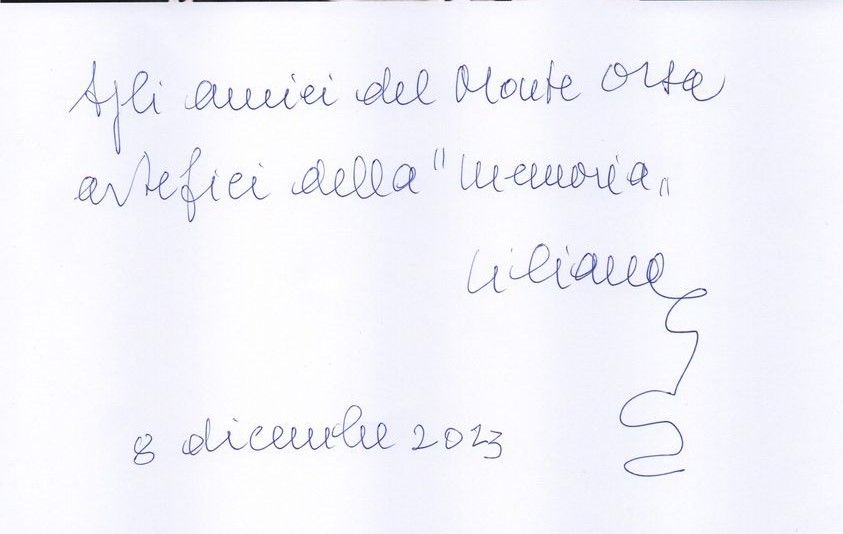 Agli amici del Monte Orsa
artefici della "Memoria"
Liliana
8 dicembre 2023